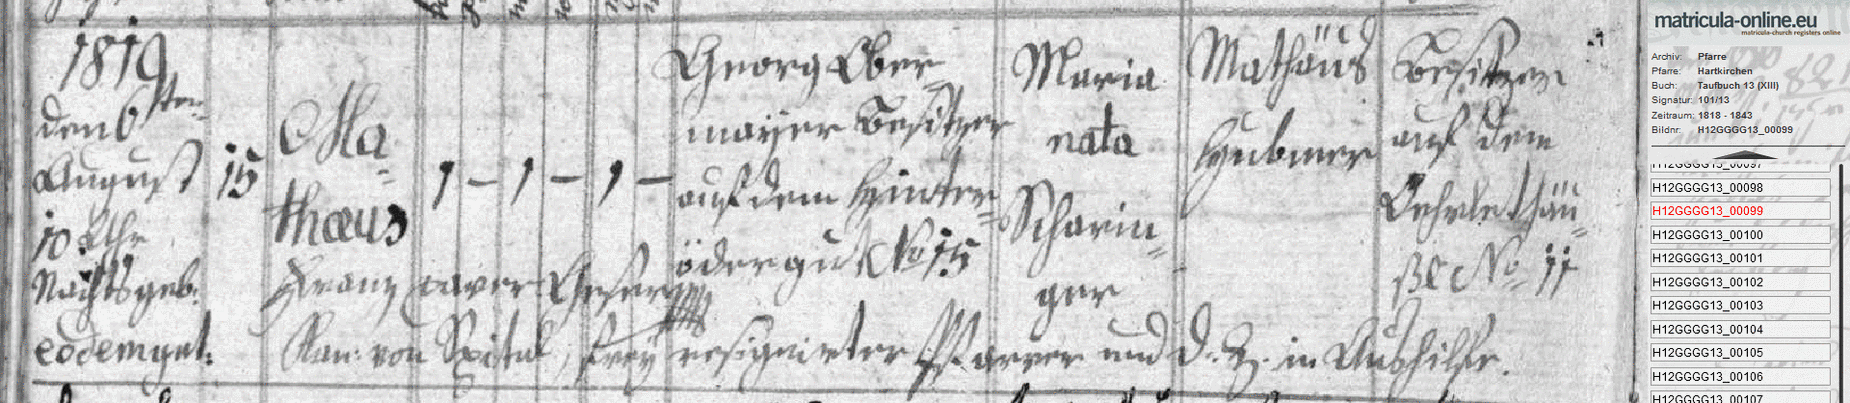 1819
den 6ten
August
10 Uhr
Nachts geb:
eodem get:
15
Ma=
thaeus
1 – 1 – 1 –
Georg Ober
mayer Besitzer
auf dem Hinter=
ödergut No 15
Maria
nata
Scharin=
ger
Mathäus
Hubmer
Besitzer
auf dem
No 11
Franz Xaver
Kan: von Spital, frey resignirter Pfarrer und d. Z. in Aushilfe.
matricula-online.eu
matricula-church registers online
Archiv: Pfarre
Pfarre: Hartkirchen
Buch: Taufbuch 13 (XIII)
Signatur: 101/13
Zeitraum: 1818 - 1843
Bildnr: H12GGGG13_00099
H12GGGG13_00097
H12GGGG13_00098
H12GGGG13_00099
H12GGGG13_00100
H12GGGG13_00101
H12GGGG13_00102
H12GGGG13_00103
H12GGGG13_00104
H12GGGG13_00105
H12GGGG13_00106
H12GGGG13_00107